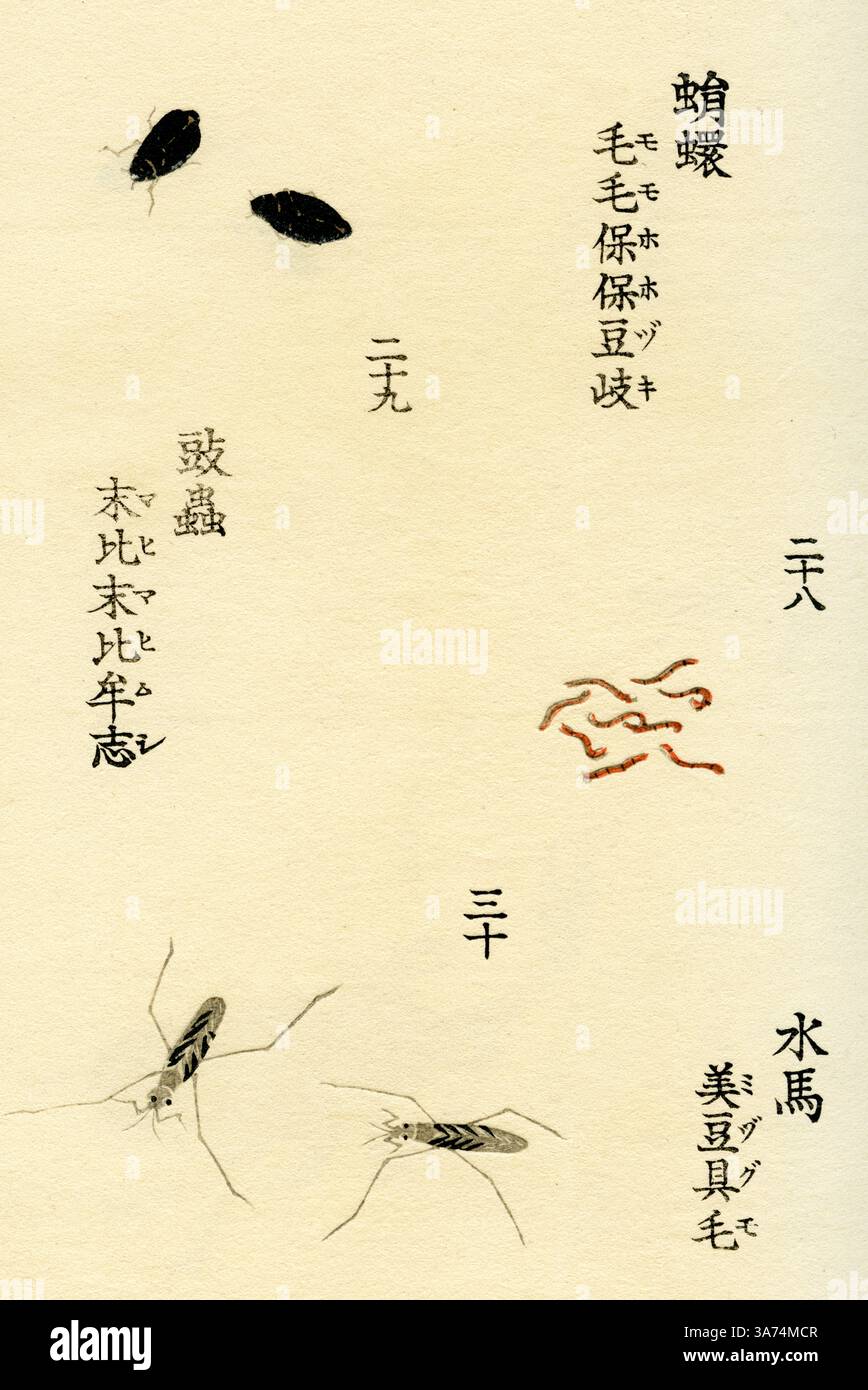 蛕蠉
毛毛保保豆岐
モモホホヅキ
二十八
二十九
豉蟲
末比末比牟志
マヒマヒムシ
三十
水馬
美豆具毛
ミヅグモ
alamy
Image ID: 3A74MCR
www.alamy.com